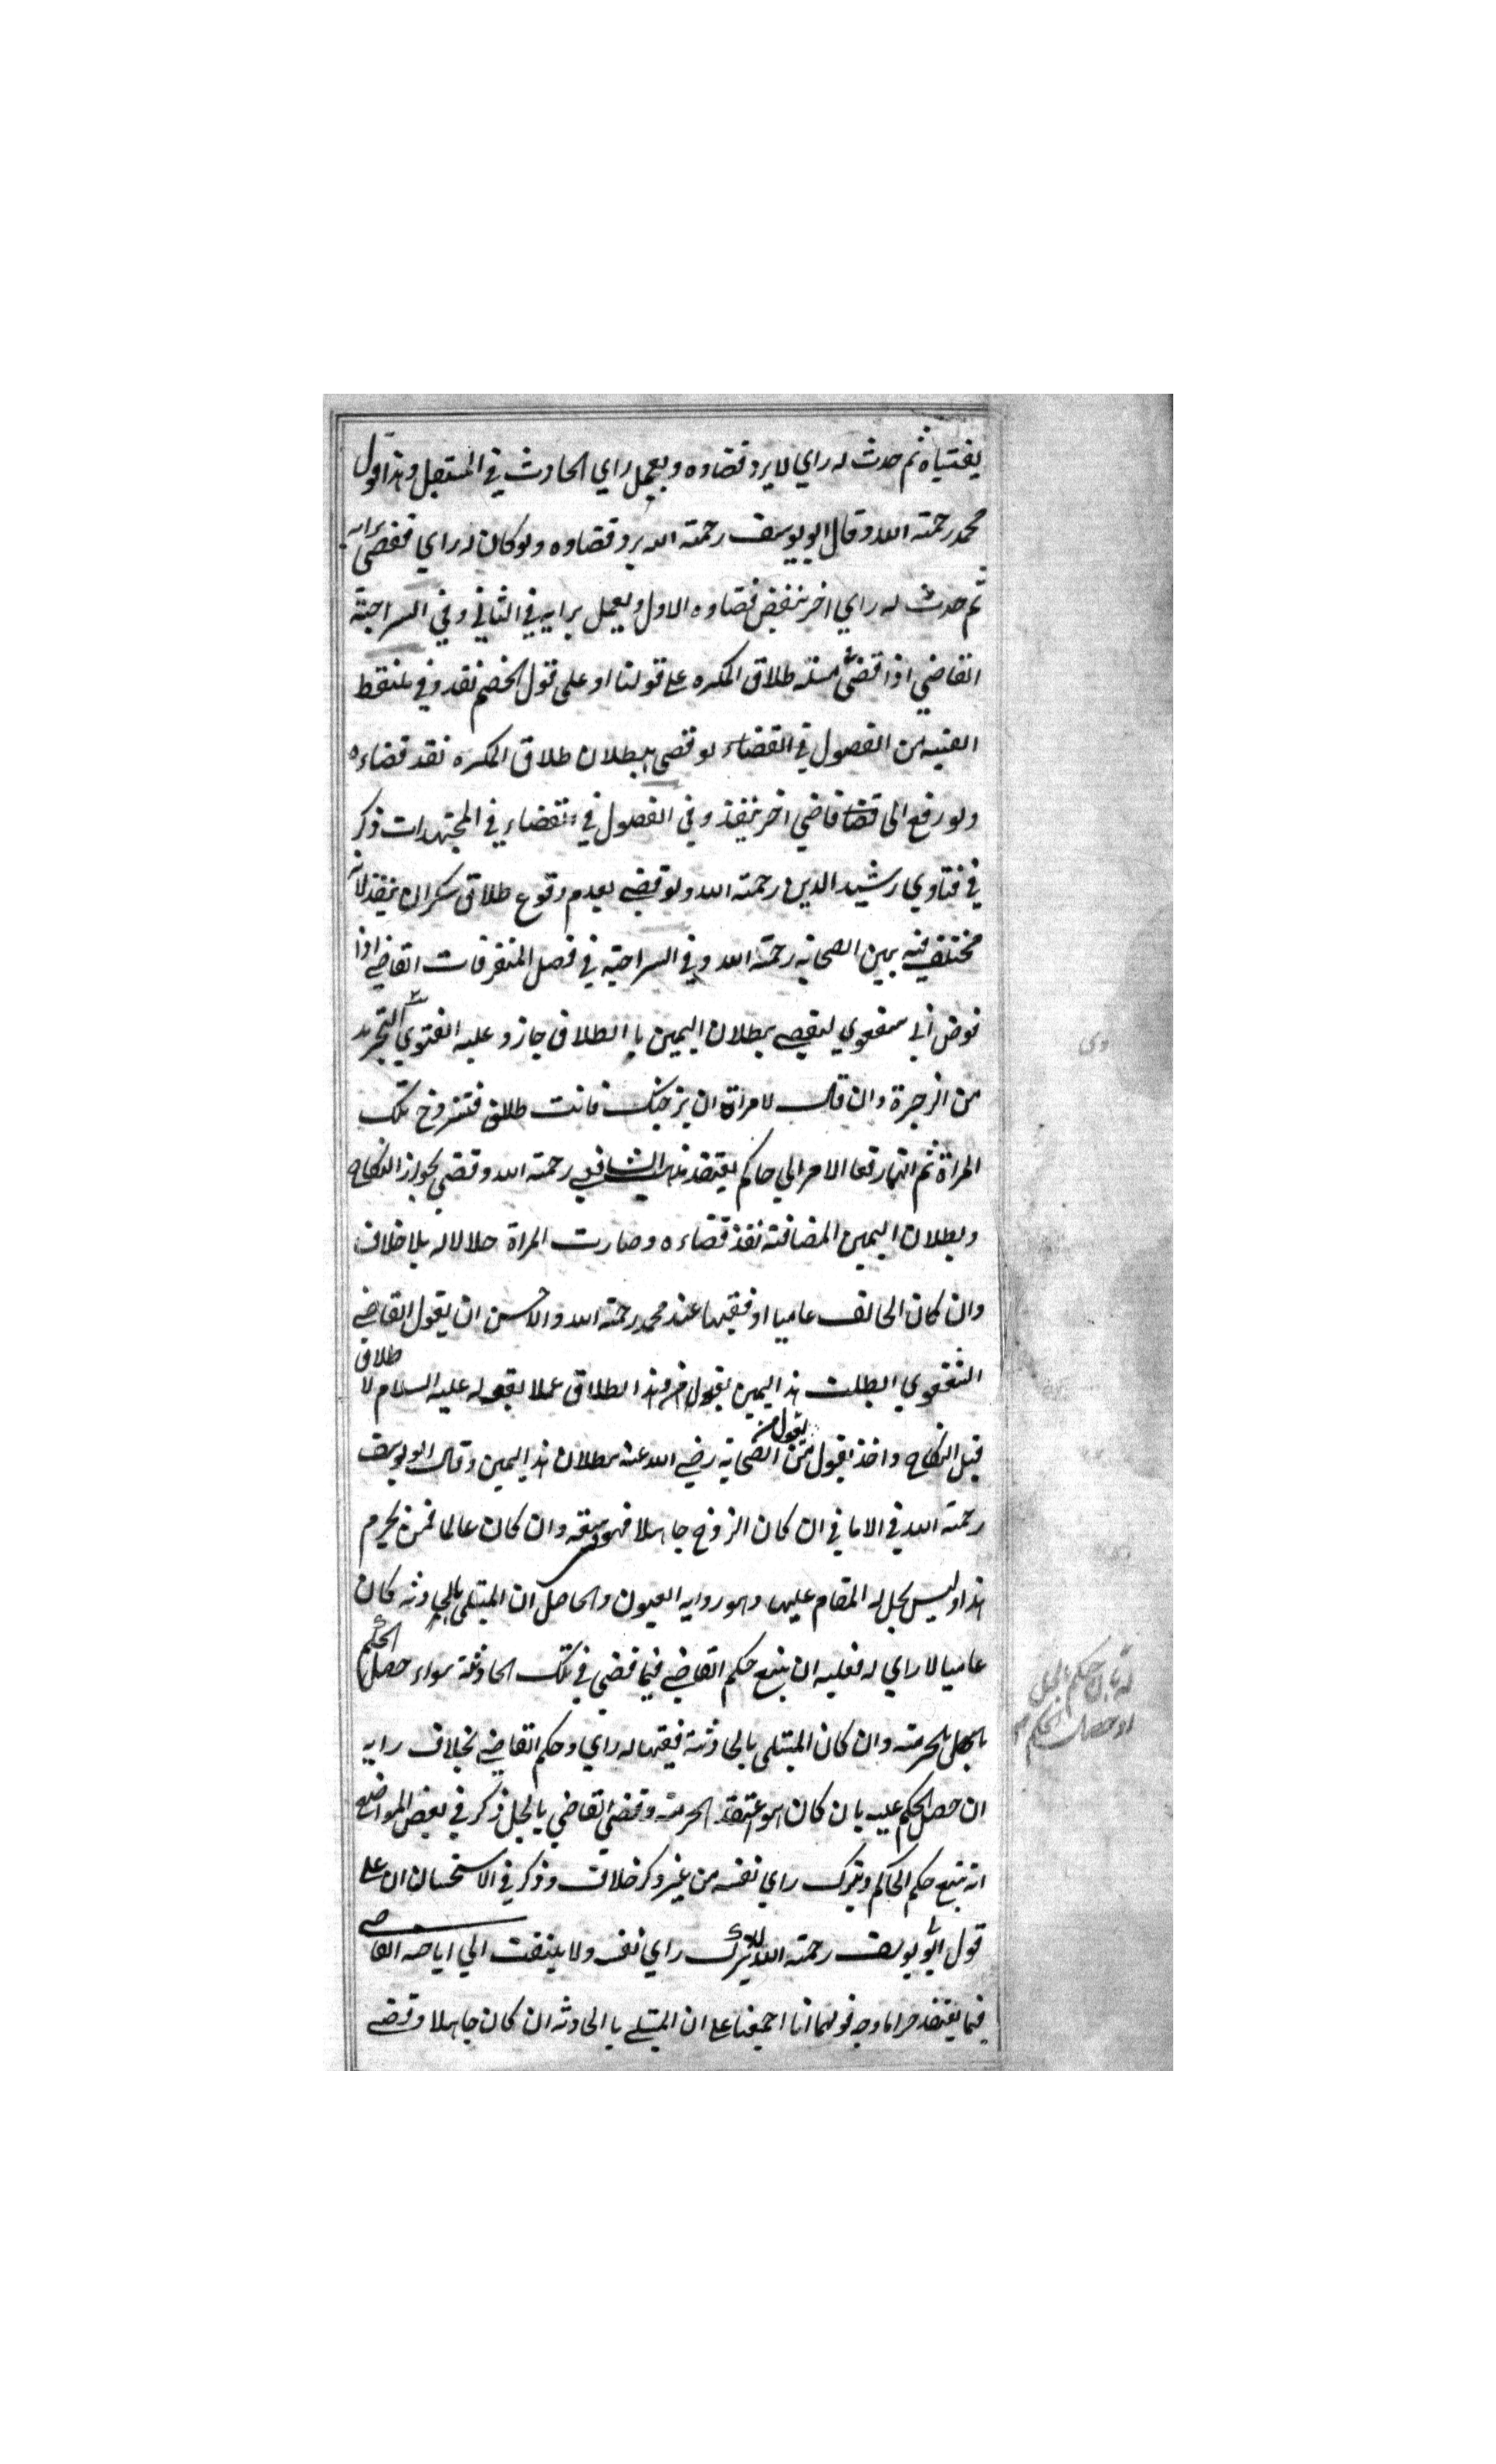 بفتياه ثم حدث له راي لا يرد قضاوه ويعمل راي الحادث في المستقبل وهذا قول
محمد رحمته الله وقال ابو يوسف رحمته الله يرد قضاوه ولو كان له راي فقضي برايه
ثم حدث له راي اخر ينقض قضاوه الاول ويعمل برايه في الثاني وفي السراجية
القاضي اذا قضي في مسئلة طلاق المكره على قولنا او على قول الخصم نفذ وفي ملتقط
الفنيه من الفصول في القضاء لو قضي ببطلان طلاق المكره نفذ قضاءه
ولو رفع الى قاضي اخر ينفذ وفي الفصول في القضاء في المجتهدات ذكر
في فتاوي رشيد الدين رحمته الله ولو قضى بعدم وقوع طلاق سكران ينفذ لانه
مختلف فيه بين الصحابه رحمته الله وفي السراجيه في فصل المتفرقات القاضي اذا
فوض الى شفعوي ليقضي ببطلان اليمين باالطلاق جاز وعليه الفتوي في التجريد
من الزجرة وان قال لامراة ان تزوجتك فانت طالق فتزوج تلك
المراة ثم انهما رفعا الامر الي حاكم يعتقد مذهب الشافعي رحمته الله وقضي بجواز النكاح
وبطلان اليمين المضافته نفذ قضاءه وصارت المراة حلالا له بلا خلاف
وان كان الحالف عاميا او فقيها عند محمد رحمته الله والاحسن ان يقول القاضي
الشفعوي ابطلت هذا اليمين بقول هذا الطلاق عملا بقوله عليه السلام لا طلاق
قبل النكاح واخذ بقول من يقول من الصحابة رضي الله عنه ببطلان هذا اليمين وقال ابو يوسف
رحمته الله في الامالي ان كان الزوج جاهلا فهو سعة وان كان عالما فمن يحرم
هذا وليس يحل له المقام عليها وهو روايه العيون والحاصل ان المبتلى بالحادثه كان
عاميا لا راي له فعليه ان يتبع حكم القاضي فيما قضي في تلك الحادثة سواء حصل الحكم
بالحل بالحرمته وان كان المبتلى بالحادثة فقيها له راي وحكم القاضي بخلاف رايه
ان حصل الحكم عليه بان كان هو يعتقد الحرمته وقضى القاضي بالحل ذكر في بعض المواضع
انه يتبع حكم الحاكم ويترك راي نفسه من غير ذكر خلاف وذكر في الاستحسان ان على
قول ابي يوسف رحمته الله لا يترك راي نفسه ولا يلتفت الي اباحه القاضي
فيما يعتقد حراما وجه قولهما انا اجمعنا على ان المبتلي باالحادثه ان كان جاهلا وقضى